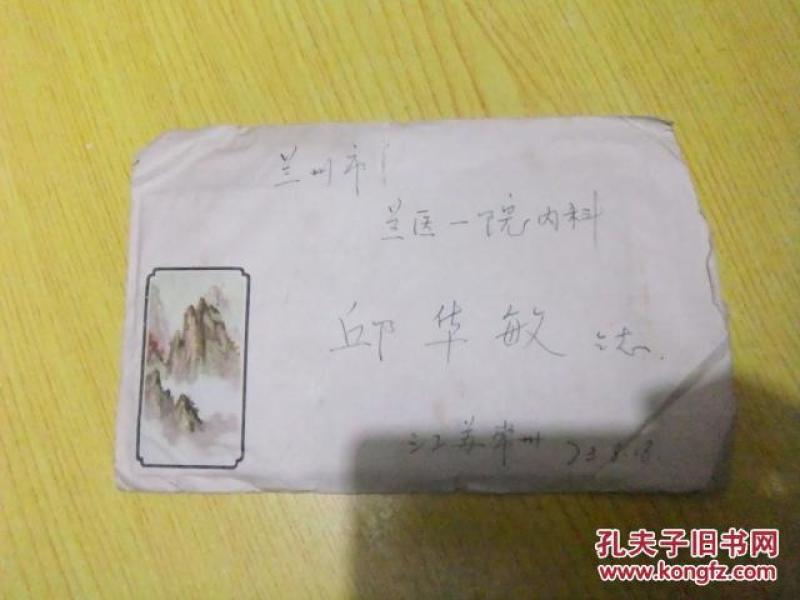 兰州市
兰医一院内科
邱华敏 仝志.
江苏常州 73.8.18.
孔夫子旧书网
www.kongfz.com